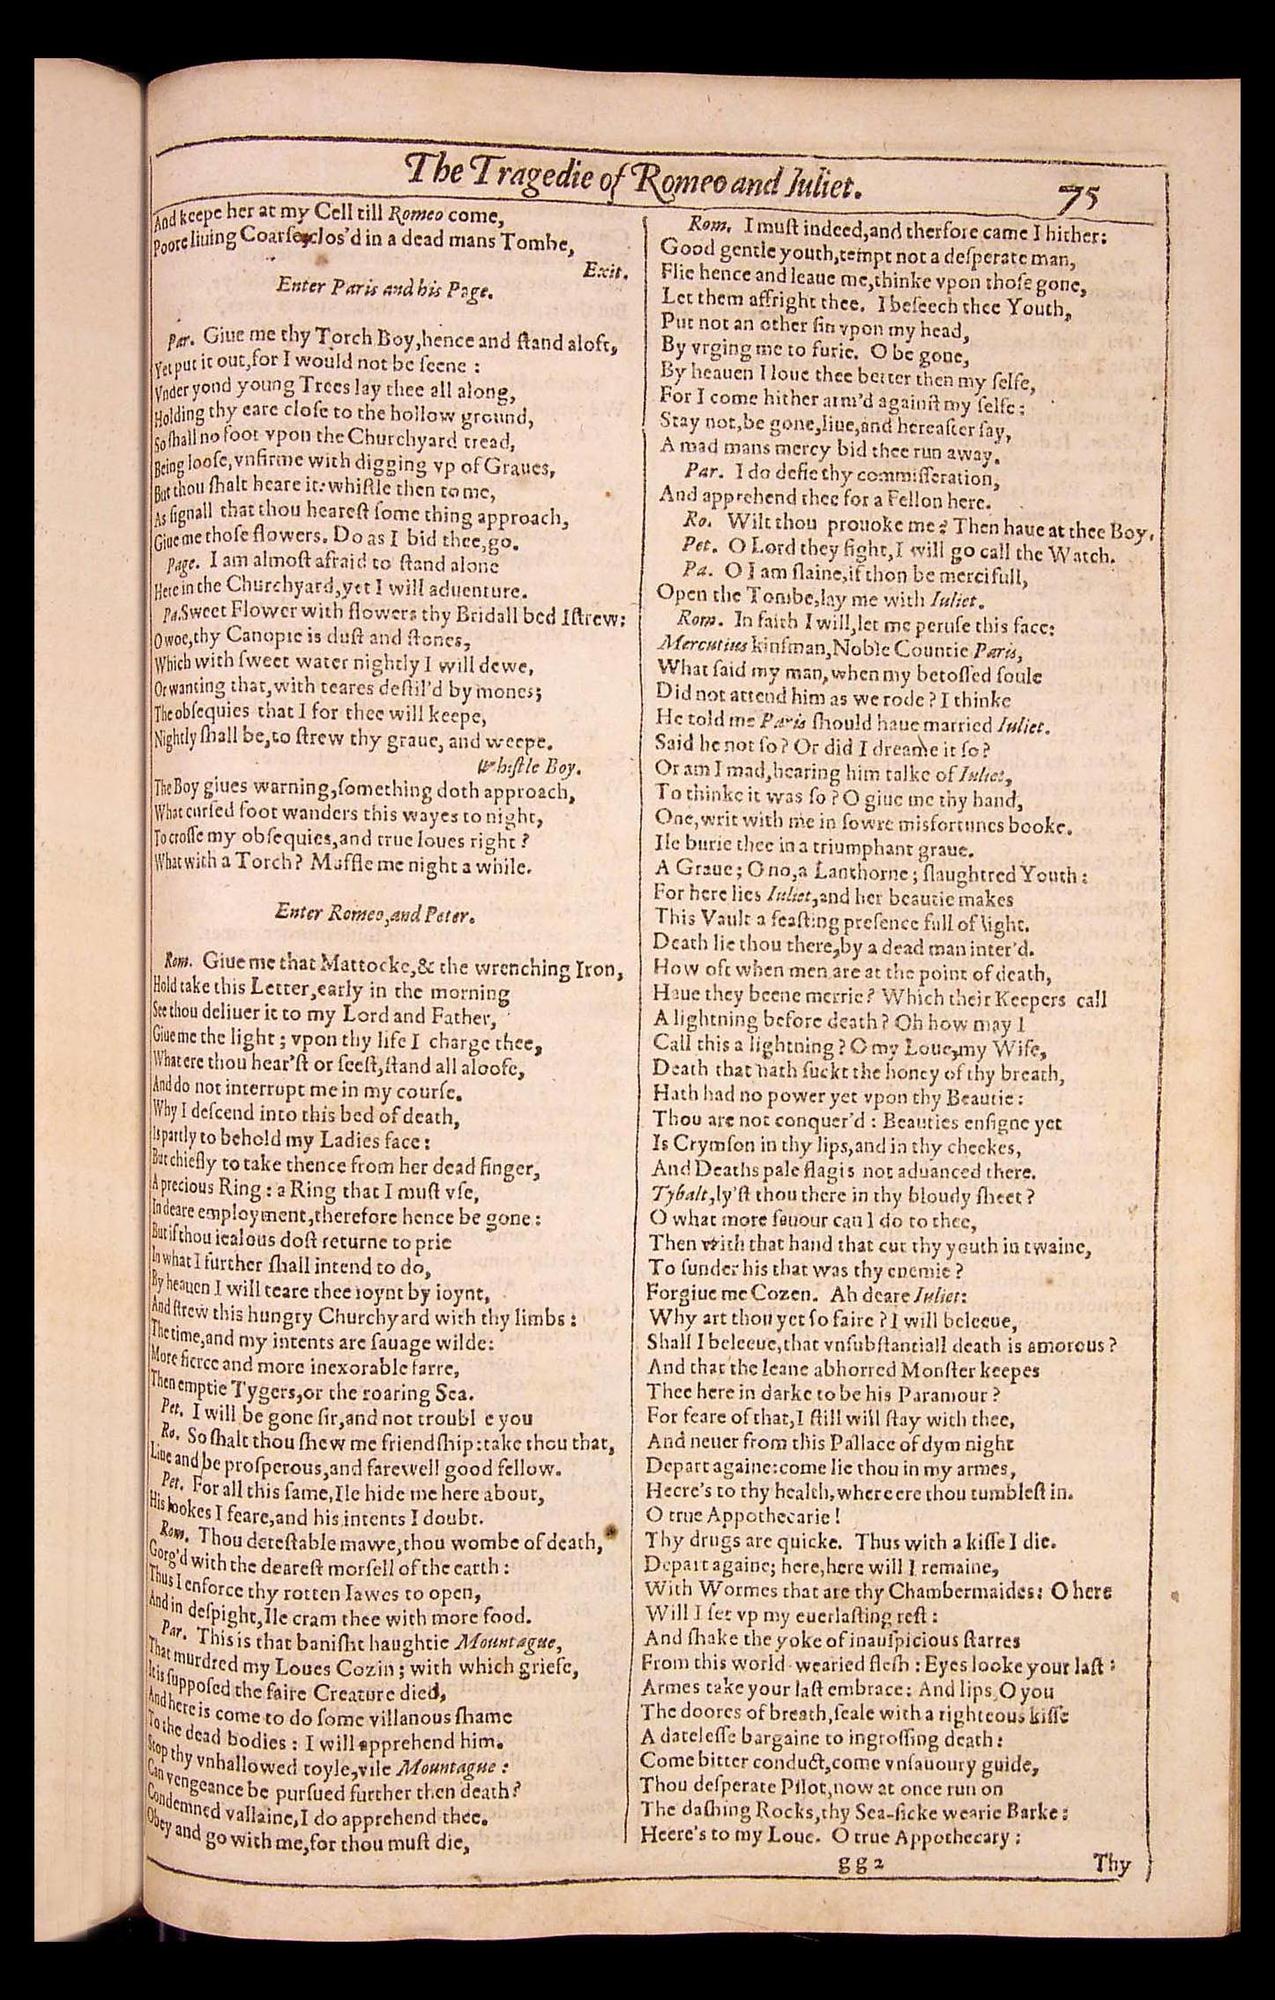 The Tragedie of Romeo and Iuliet.
75
And keepe her at my Cell till Romeo come,
Poore liuing Coarse, clos'd in a dead mans Tombe,
Exit.
Enter Paris and his Page.
Par. Giue me thy Torch Boy, hence and ſtand aloft,
Yet put it out, for I would not be ſeene :
Vnder yond young Trees lay thee all along,
Holding thy eare cloſe to the hollow ground,
So ſhall no foot vpon the Churchyard tread,
Being looſe, vnfirme with digging vp of Graues,
But thou ſhalt heare it: whiſtle then to me,
As ſignall that thou heareſt ſome thing approach,
Giue me thoſe flowers. Do as I bid thee, go.
Page. I am almoſt afraid to ſtand alone
Here in the Churchyard, yet I will aduenture.
Pa. Sweet Flower with flowers thy Bridall bed I ſtrew:
O woe, thy Canopie is duſt and ſtones,
Which with ſweet water nightly I will dewe,
Or wanting that, with teares deſtil'd by mones;
The obſequies that I for thee will keepe,
Nightly ſhall be, to ſtrew thy graue, and weepe.
Whiſtle Boy.
The Boy giues warning, ſomething doth approach,
What curſed foot wanders this wayes to night,
To croſſe my obſequies, and true loues right ?
What with a Torch? Muffle me night a while.
Enter Romeo, and Peter.
Rom. Giue me that Mattocke, & the wrenching Iron,
Hold take this Letter, early in the morning
See thou deliuer it to my Lord and Father,
Giue me the light ; vpon thy life I charge thee,
What ere thou hear'ſt or ſeeſt, ſtand all aloofe,
And do not interrupt me in my courſe.
Why I deſcend into this bed of death,
Is partly to behold my Ladies face :
But chiefly to take thence from her dead finger,
A precious Ring : a Ring that I muſt vſe,
In deare employment, therefore hence be gone :
But if thou iealous doſt returne to prie
In what I further ſhall intend to do,
By heauen I will teare thee ioynt by ioynt,
And ſtrew this hungry Churchyard with thy limbs :
The time, and my intents are ſauage wilde:
More fierce and more inexorable farre,
Then emptie Tygers, or the roaring Sea.
Pet. I will be gone ſir, and not troubl e you
Ro. So ſhalt thou ſhew me friendſhip: take thou that,
Liue and be proſperous, and farewell good fellow.
Pet. For all this ſame, Ile hide me here about,
His lookes I feare, and his intents I doubt.
Rom. Thou deteſtable mawe, thou wombe of death,
Gorg'd with the deareſt morſell of the earth :
Thus I enforce thy rotten Iawes to open,
And in deſpight, Ile cram thee with more food.
Par. This is that baniſht haughtie Mountague,
That murdred my Loues Cozin ; with which griefe,
It is ſuppoſed the faire Creature died,
And here is come to do ſome villanous ſhame
To the dead bodies : I will apprehend him.
Stop thy vnhallowed toyle, vile Mountague :
Can vengeance be purſued further then death?
Condemned vallaine, I do apprehend thee.
Obey and go with me, for thou muſt die,
Rom. I muſt indeed, and therfore came I hither:
Good gentle youth, tempt not a deſperate man,
Flie hence and leaue me, thinke vpon thoſe gone,
Let them affright thee. I beſeech thee Youth,
Put not an other ſin vpon my head,
By vrging me to furie. O be gone,
By heauen I loue thee better then my ſelfe,
For I come hither arm'd againſt my ſelfe :
Stay not, be gone, liue, and hereafter ſay,
A mad mans mercy bid thee run away.
Par. I do defie thy commiſſeration,
And apprehend thee for a Fellon here.
Ro. Wilt thou prouoke me ? Then haue at thee Boy.
Pet. O Lord they fight, I will go call the Watch.
Pa. O I am ſlaine, if thou be mercifull,
Open the Tombe, lay me with Iuliet.
Rom. In faith I will, let me peruſe this face:
Mercutius kinſman, Noble Countie Paris,
What ſaid my man, when my betoſſed ſoule
Did not attend him as we rode ? I thinke
He told me Paris ſhould haue married Iuliet.
Said he not ſo? Or did I dreame it ſo?
Or am I mad, hearing him talke of Iuliet,
To thinke it was ſo ? O giue me thy hand,
One, writ with me in ſowre misfortunes booke.
Ile burie thee in a triumphant graue.
A Graue ; O no, a Lanthorne ; ſlaughtred Youth :
For here lies Iuliet, and her beautie makes
This Vault a feaſting preſence full of light.
Death lie thou there, by a dead man inter'd.
How oft when men are at the point of death,
Haue they beene merrie? Which their Keepers call
A lightning before death ? Oh how may I
Call this a lightning ? O my Loue, my Wife,
Death that hath ſuckt the honey of thy breath,
Hath had no power yet vpon thy Beautie :
Thou are not conquer'd : Beauties enſigne yet
Is Crymſon in thy lips, and in thy cheekes,
And Deaths pale flag is not aduanced there.
Tybalt, ly'ſt thou there in thy bloudy ſheet ?
O what more fauour can I do to thee,
Then with that hand that cut thy youth in twaine,
To ſunder his that was thy enemie ?
Forgiue me Cozen. Ah deare Iuliet:
Why art thou yet ſo faire ? I will beleeue,
Shall I beleeue, that vnſubſtantiall death is amorous ?
And that the leane abhorred Monſter keepes
Thee here in darke to be his Paramour ?
For feare of that, I ſtill will ſtay with thee,
And neuer from this Pallace of dym night
Depart againe: come lie thou in my armes,
Heere's to thy health, where ere thou tumbleſt in.
O true Appothecarie !
Thy drugs are quicke. Thus with a kiſſe I die.
Depart againe; here, here will I remaine,
With Wormes that are thy Chambermaides: O here
Will I ſet vp my euerlaſting reſt :
And ſhake the yoke of inauſpicious ſtarres
From this world-wearied fleſh : Eyes looke your laſt :
Armes take your laſt embrace: And lips, O you
The doores of breath, ſeale with a righteous kiſſe
A dateleſſe bargaine to ingroſſing death :
Come bitter conduct, come vnſauoury guide,
Thou deſperate Pilot, now at once run on
The daſhing Rocks, thy Sea-ſicke wearie Barke :
Heere's to my Loue. O true Appothecary :
gg 2
Thy